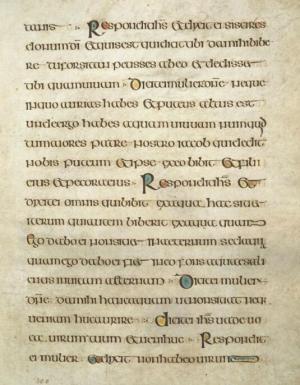 tanis Respondit ihs et dixit ei si scires
donum di et quis est qui dicit tibi da mihi bibe
re tu forsitan petisses ab eo et dedisset
tibi aquam uiuam Dicit ei mulier dne neque
in quo aurias habes et puteus altus est
unde ergo habes aquam uiuam numquid
tu maior es patre nostro iacob qui dedit
nobis puteum et ipse ex eo bibit et filii
eius et pecora eius Respondit ihs et
dixit ei omnis qui bibit ex aqua hac sitiet
iterum qui autem biberit ex aqua quam
ego dabo ei non sitiet in aeternum sed aqua
quam ego dabo ei fiet in eo fons aquae sali
entis in uitam aeternam Dicit ei mulier
dne da mihi hanc aquam ut non sitiam neque
ueniam huc aurire Dicit ei ihs uade uo
ca uirum tuum et ueni huc Respondit
ei mulier et dixit non habeo uirum